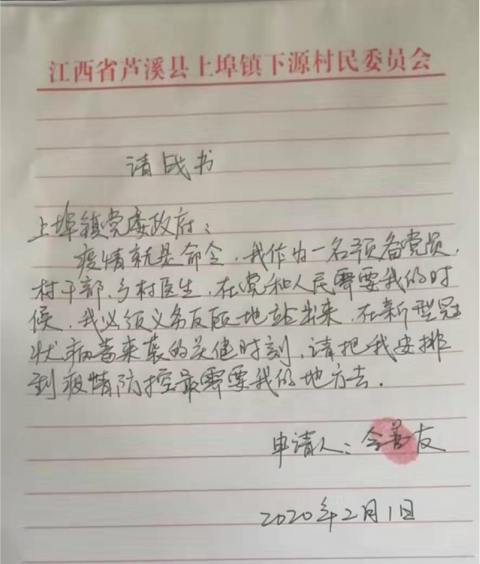 江西省芦溪县上埠镇下源村民委员会
请战书
上埠镇党委政府：
疫情就是命令，我作为一名预备党员，
村干部、乡村医生，在党和人民需要我的时
候，我必须义务反顾地站出来，在新型冠
状病毒来袭的关健时刻，请把我安排
到疫情防控最需要我的地方去.
申请人：善友
2020年2月1日